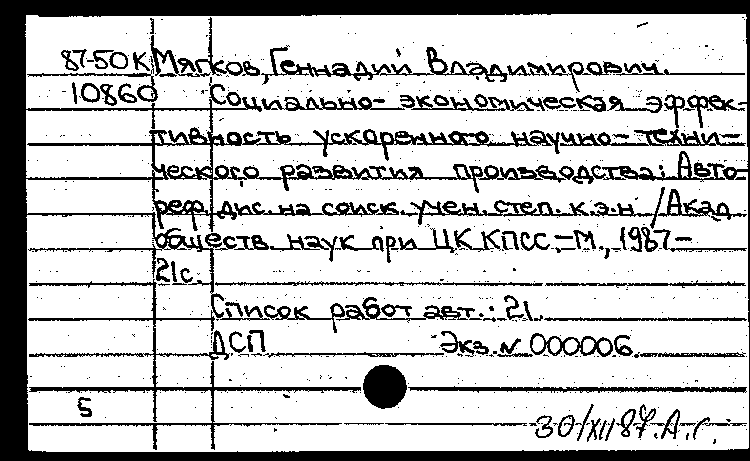 87-50К Мягков, Геннадий Владимирович.
10860 Социально-экономическая эффек-
тивность ускоренного научно-техни-
ческого развития производства: Авто-
реф. дис. на соиск. учен. степ. к.э.н. /Акад.
обществ. наук при ЦК КПСС.-М., 1987-
21с.
Список работ авт.: 21.
ДСП Экз. N 000006.
5
30/XII 87. А.Г.